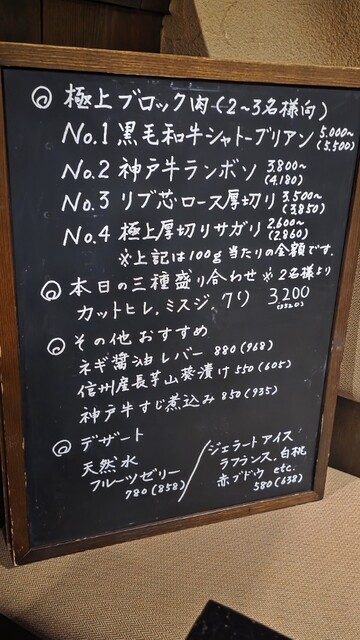 ◎ 極上ブロック肉(2~3名様向)
No.1 黒毛和牛シャトーブリアン 5,000~
(5,500)
No.2 神戸牛ランボソ 3,800~
(4,180)
No.3 リブ芯ロース厚切り 3,500~
(3,850)
No.4 極上厚切りサガリ 2,600~
(2,860)
※上記は100g当たりの金額です.
◎ 本日の三種盛り合わせ ※2名様より
カットヒレ.ミスジ.クリ 3200
(3520)
◎ その他おすすめ
ネギ醤油レバー 880(968)
信州産長芋山葵漬け 550(605)
神戸牛すじ煮込み 850(935)
◎ デザート
天然水
フルーツゼリー
780(858)
ジェラートアイス
ラフランス.白桃
赤ブドウ etc.
580(638)